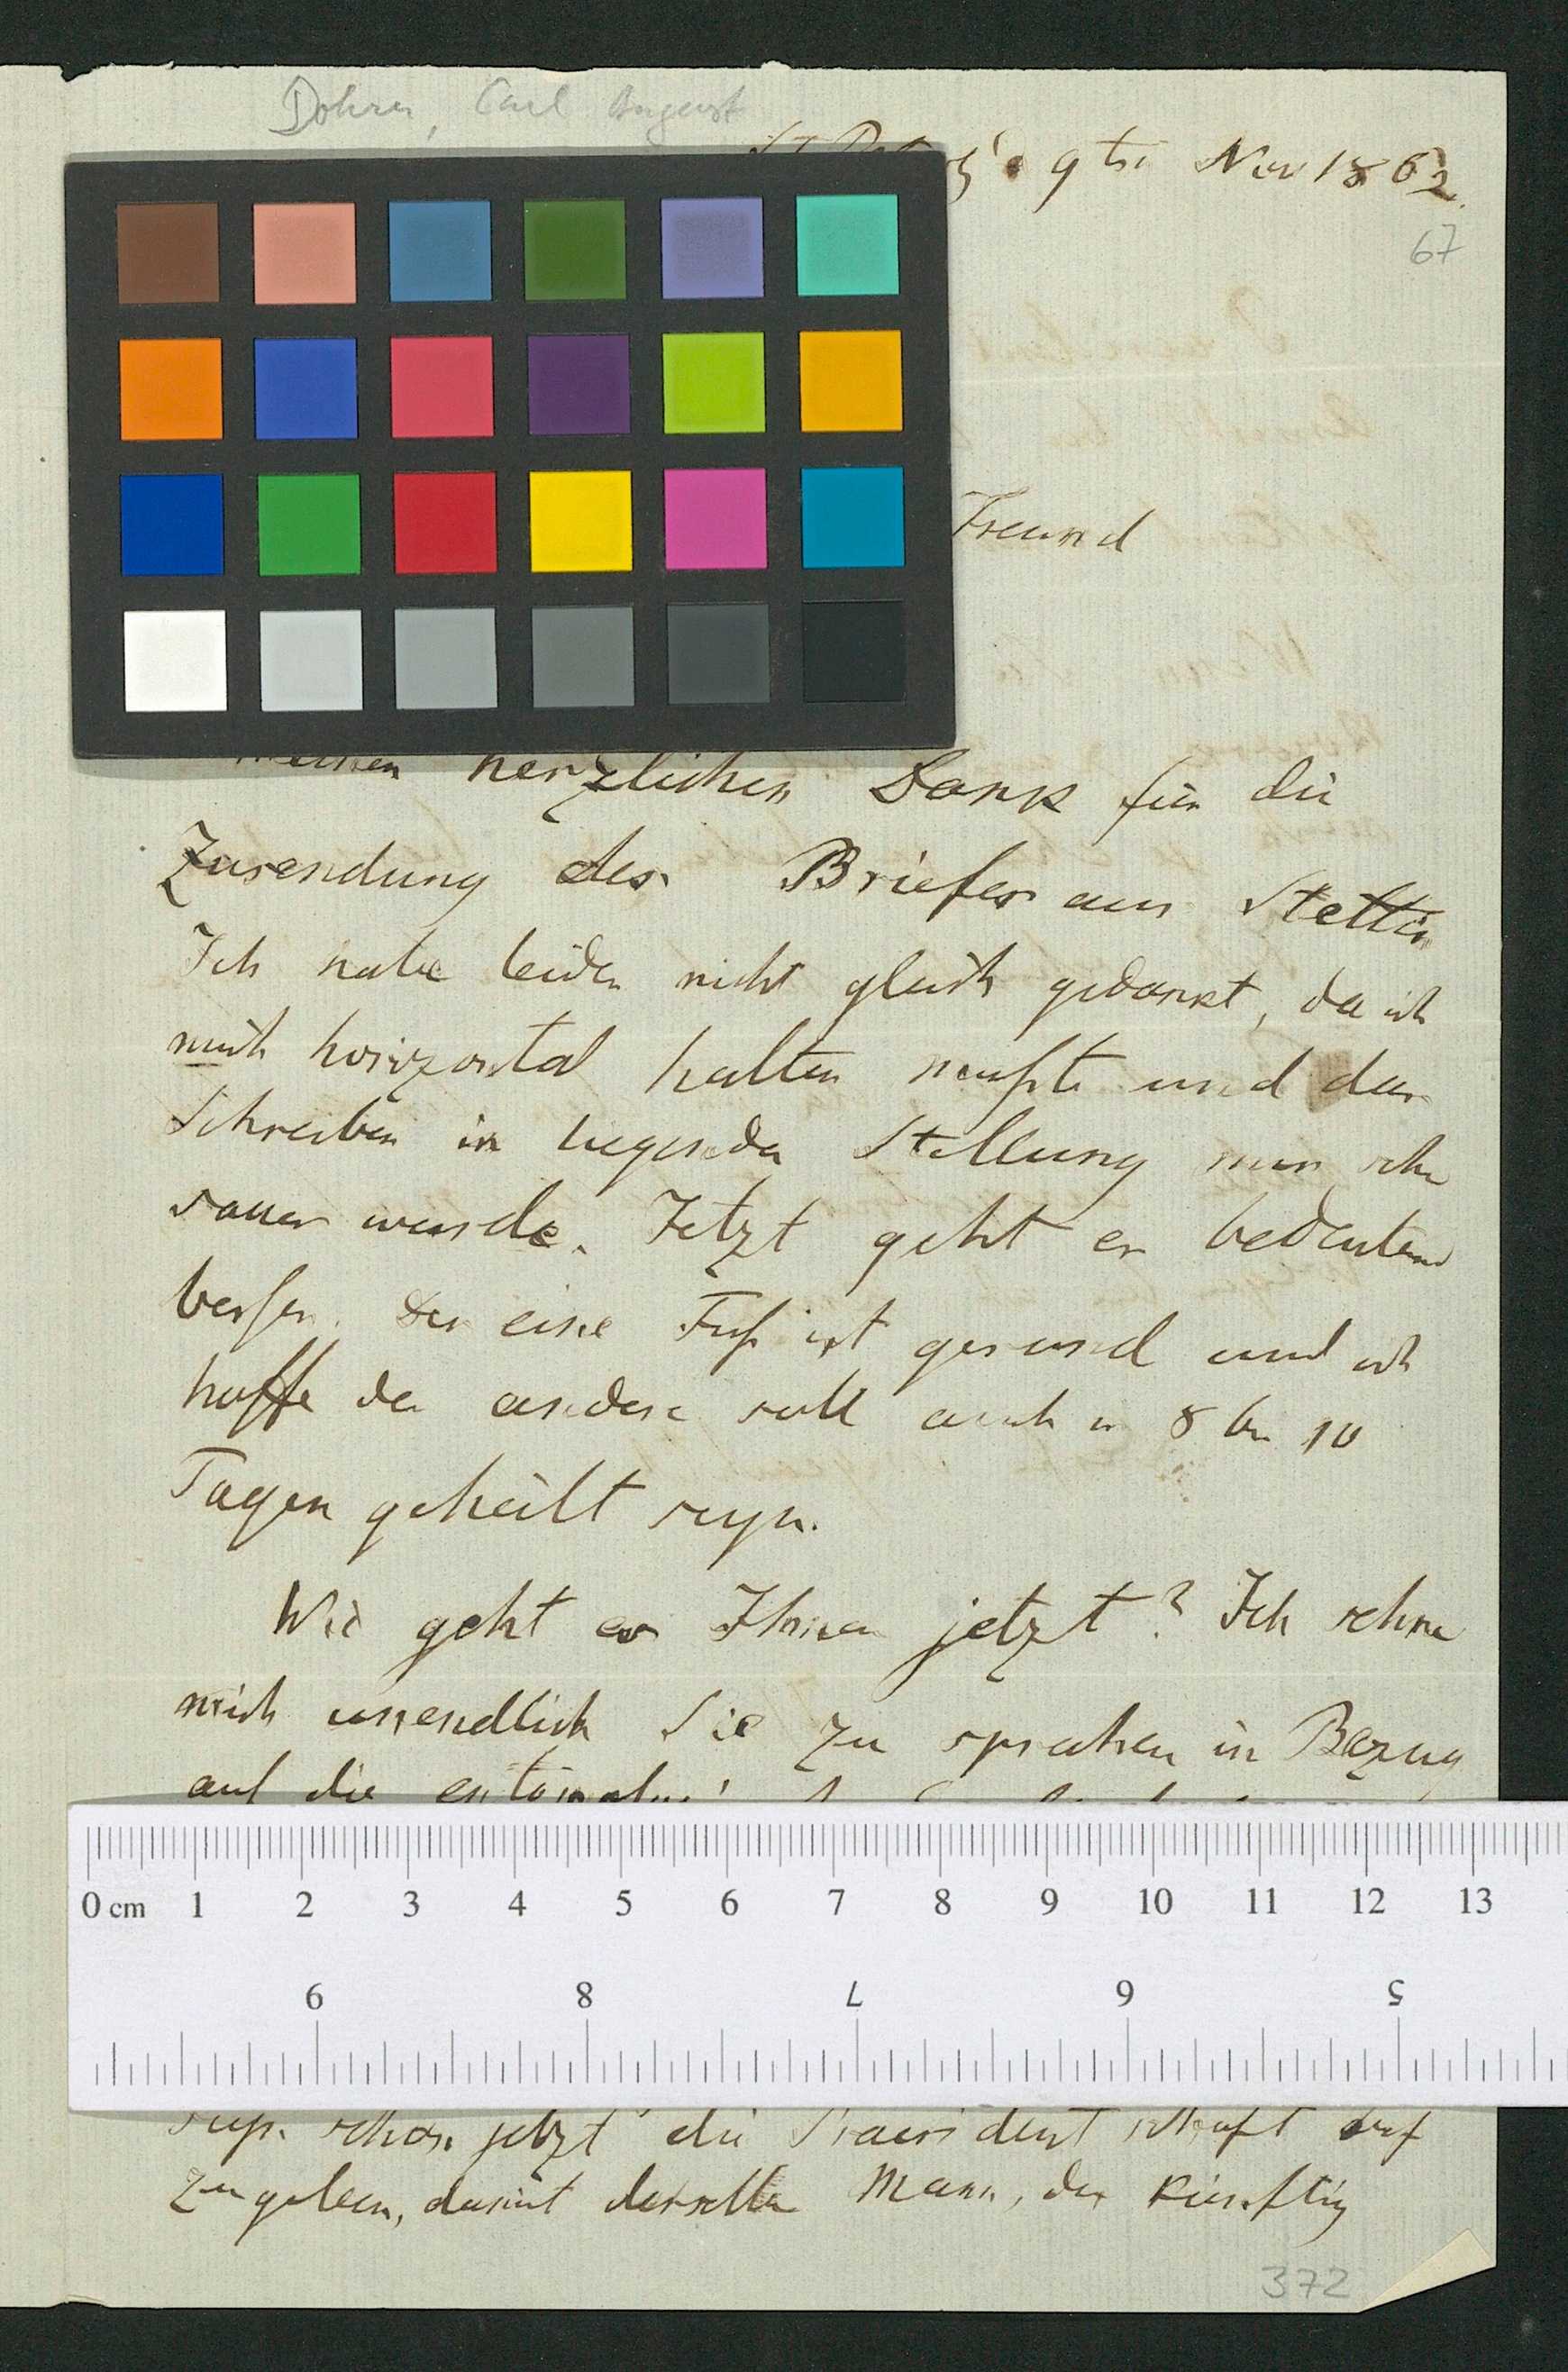 Dohrn, Carl August
9ten Nov 1862.
67
Freund
meinen herzlichen Dank für die
Zusendung des Briefes aus Stettin
Ich habe leider nicht gleich gedankt, da ich
mich horizontal halten mußte und das
Schreiben in liegender Stellung mir sehr
sauer wurde. Jetzt geht es bedeutend
besser. Der eine Fuß ist gesund und ich
hoffe der andere soll auch in 8 bis 10
Tagen geheilt seyn.
Wie geht es Ihnen jetzt? Ich sehne
mich unendlich Sie zu sprechen in Bezug
auf die
0 cm 1 2 3 4 5 6 7 8 9 10 11 12 13
9 8 7 6 5
schon jetzt die Praesidentschaft auf
zugeben, damit derselbe Mann, der künftig
372